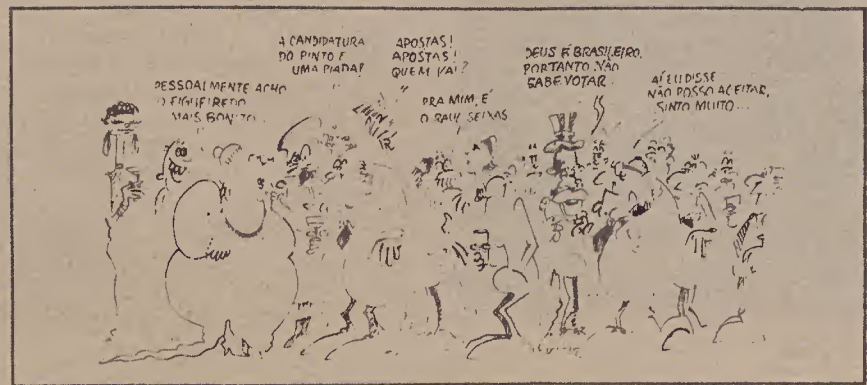 PESSOALMENTE ACHO
O FIGUEIREDO
MAIS BONITO...
A CANDIDATURA
DO PINTO É
UMA PIADA!
APOSTAS!
APOSTAS!
QUEM VAI?
PRA MIM, É
O RAUL SEIXAS
DEUS É BRASILEIRO,
PORTANTO NÃO
SABE VOTAR.
AÍ EU DISSE
NÃO POSSO ACEITAR,
SINTO MUITO...